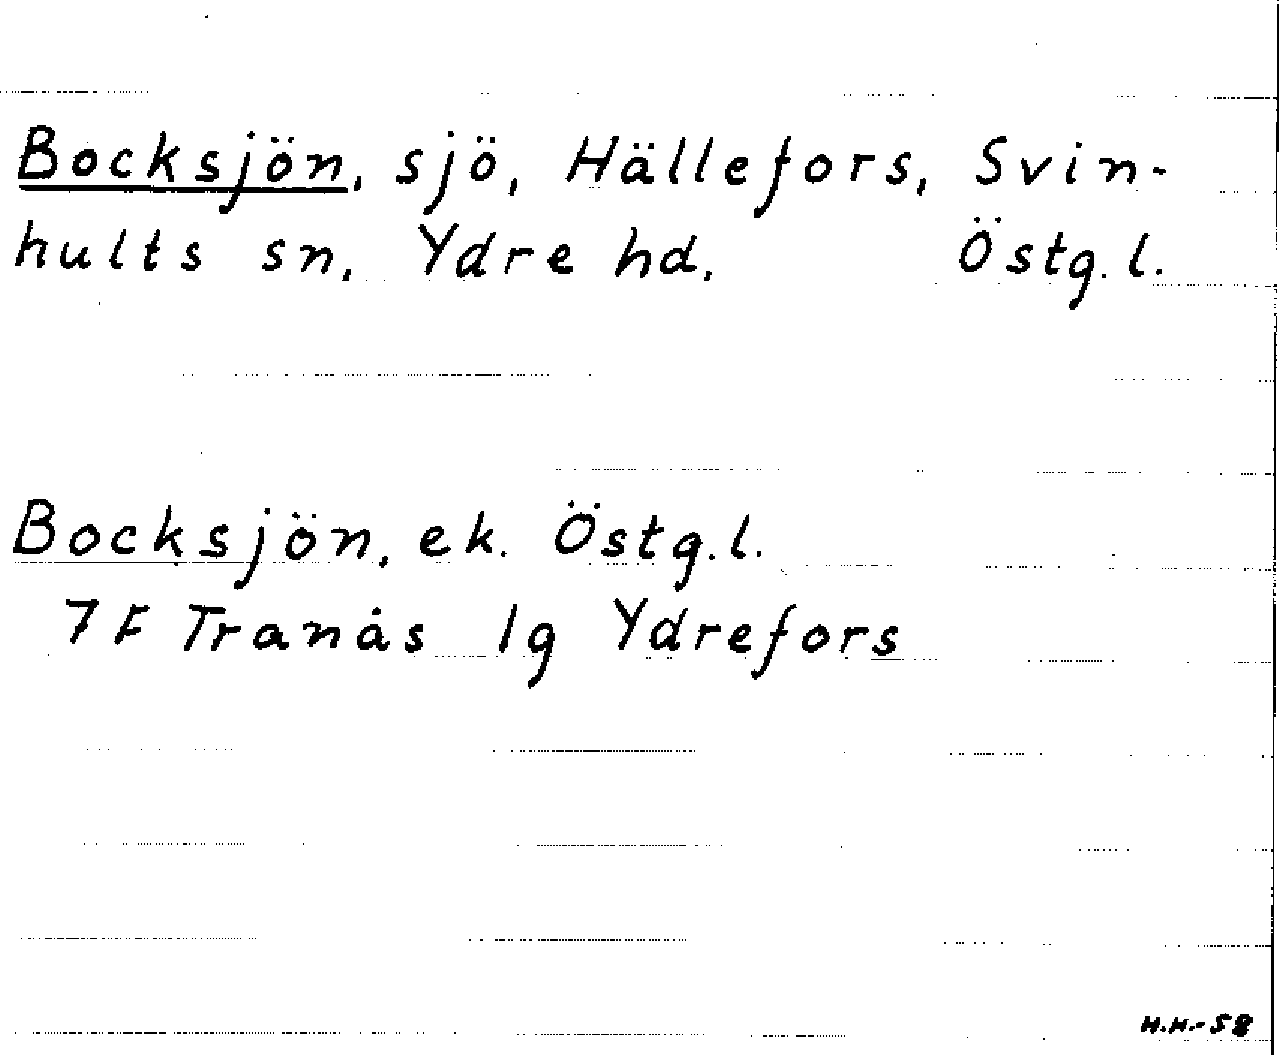 Bocksjön, sjö, Hällefors, Svin-
hults sn, Ydre hd, Östg. l.
Bocksjön, ek. Östg. l.
7 F Tranås 1g Ydrefors
H.H.-58